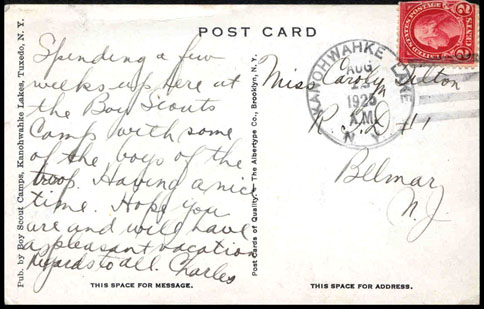 POST CARD
Pub. by Boy Scout Camps, Kanohwahke Lakes, Tuxedo, N. Y.
Spending a few
weeks up here at
the Boy Scouts
Camp with some
of the boys of the
troop. Having a nice
time. Hope you
are and will have
a pleasant vacation
Regards to all. Charles
THIS SPACE FOR MESSAGE.
Post Cards of Quality. The Albertype Co., Brooklyn, N. Y.
KANOHWAHKE LAKE
AUG
25
1925
A.M.
N.Y.
UNITED STATES POSTAGE
2 CENTS 2
Miss Carolyn Tilton
R. F. D #1
Belmar
N. J.
THIS SPACE FOR ADDRESS.